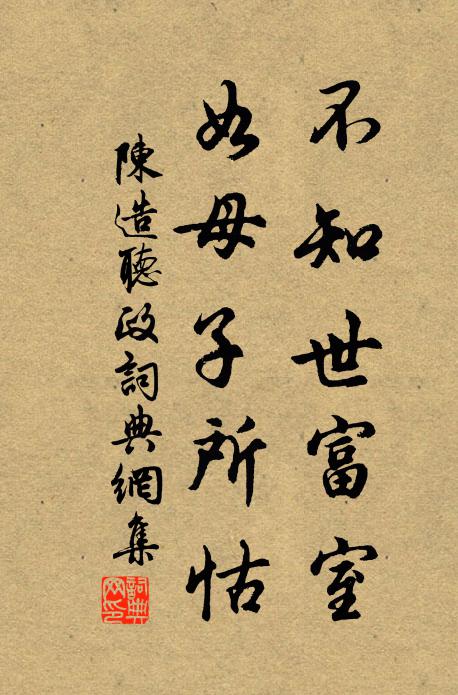 不知世富室
如母子所怙
陳造聽政詞典網集
詞典網印